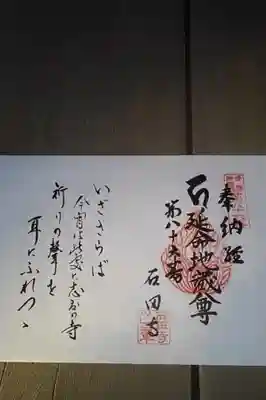 奉納経
延命地蔵尊
第八十六番
石田寺
いざさらば
今宵は此處に志度の寺
祈りの聲を
耳にふれつゝ